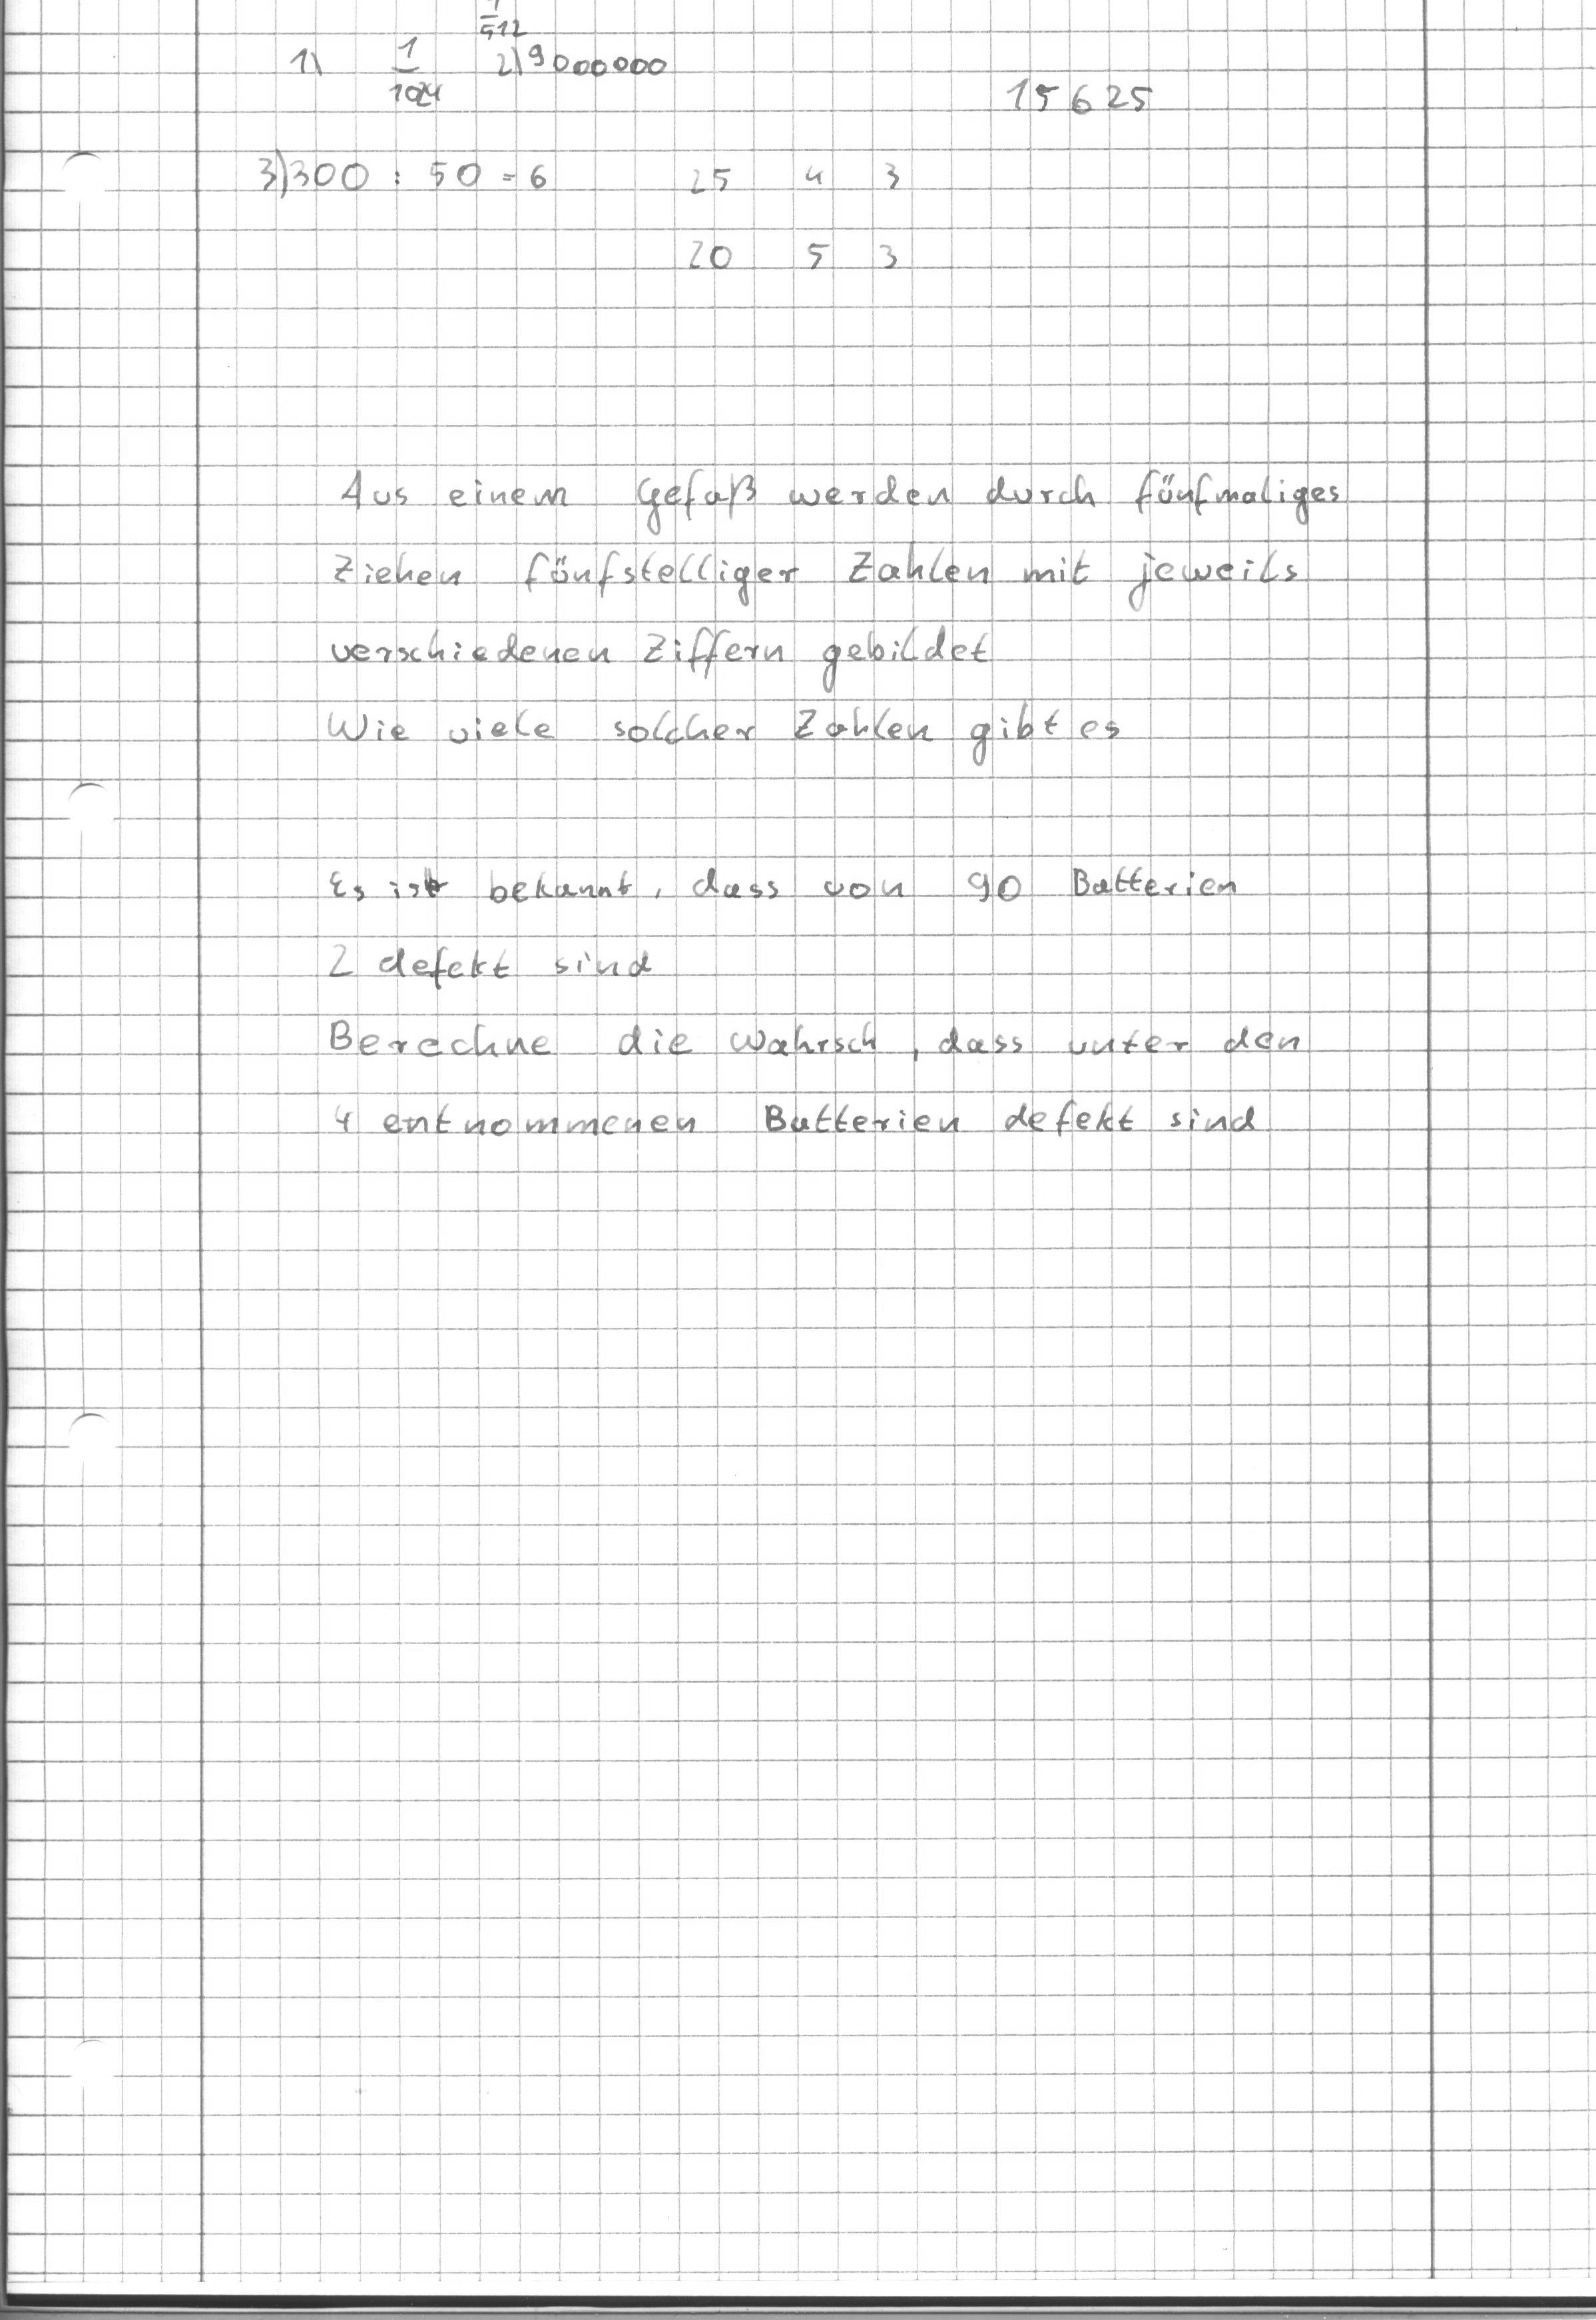 1
512
1) 1 2) 9000000
1024
15625
3) 300 : 50 = 6 25 4 3
20 5 3
Aus einem Gefaß werden durch fünfmaliges
Ziehen fünfstelliger Zahlen mit jeweils
verschiedenen Ziffern gebildet
Wie viele solcher Zahlen gibt es
Es ist bekannt, dass von 90 Batterien
2 defekt sind
Berechne die Wahrsch, dass unter den
4 entnommenen Batterien defekt sind